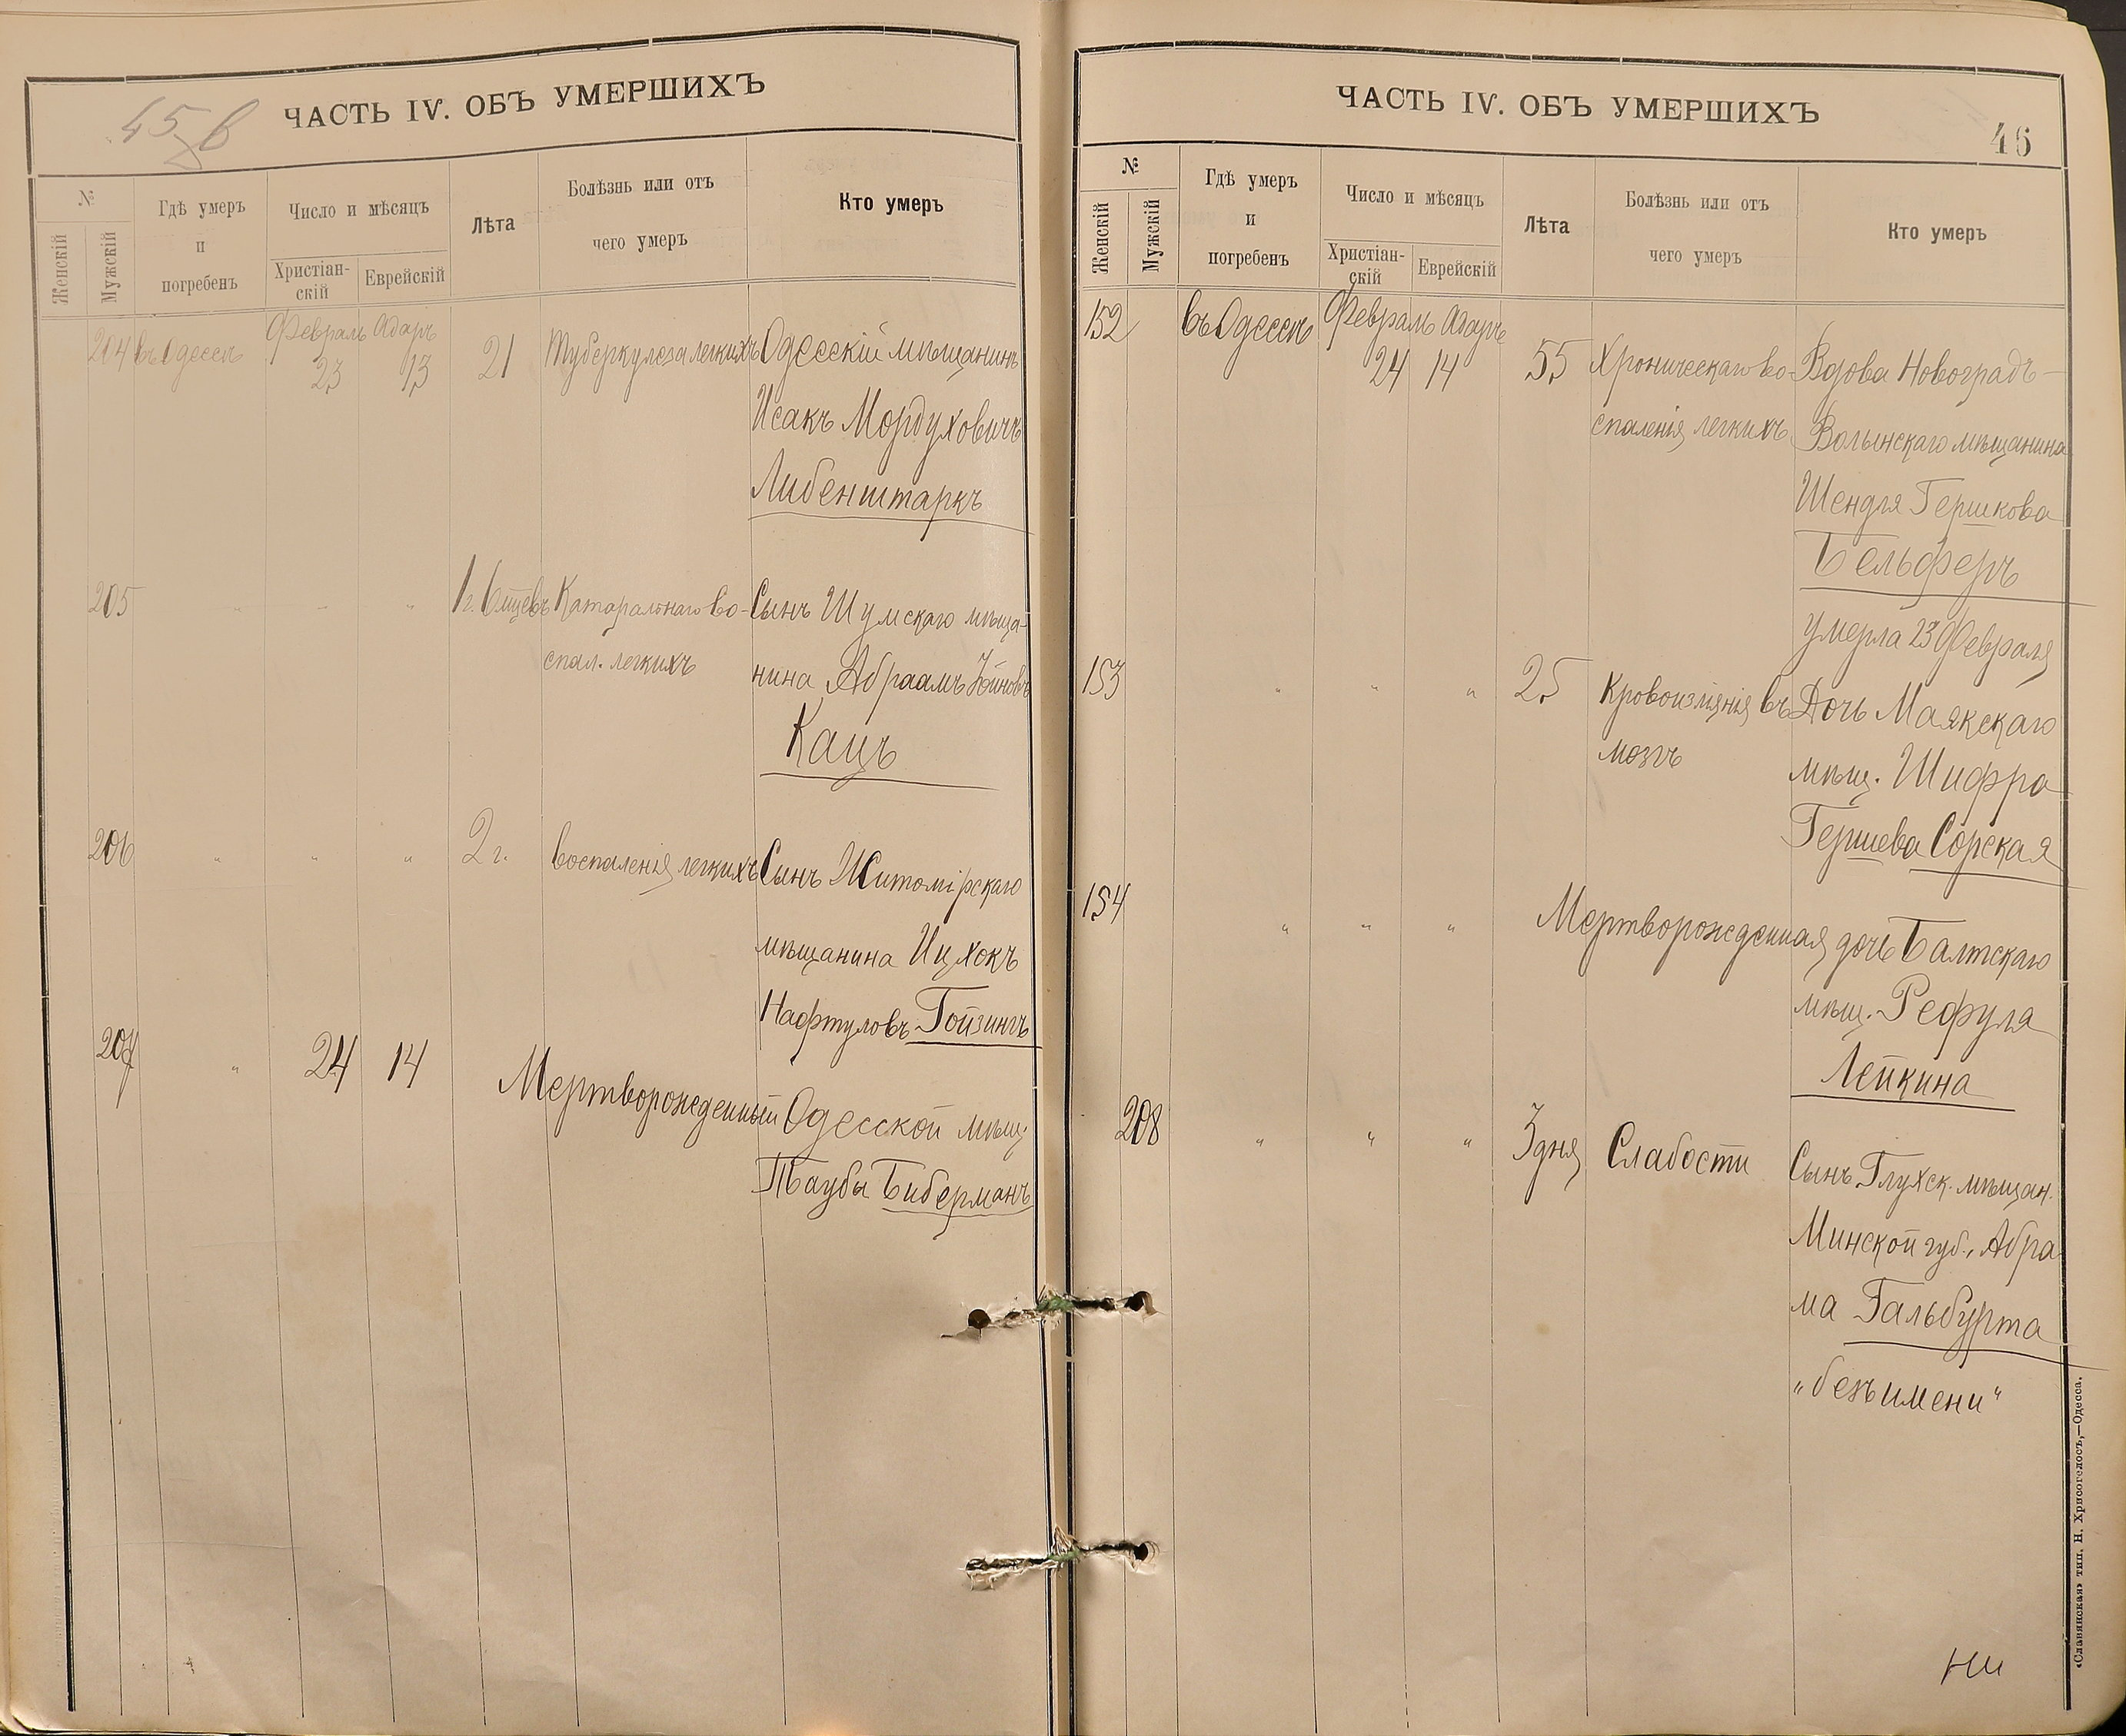 45 в
ЧАСТЬ IV. ОБЪ УМЕРШИХЪ
№
Женскій
Мужскій
Гдѣ умеръ
и
погребенъ
Число и мѣсяцъ
Христіан-
скій
Еврейскій
Лѣта
Болѣзнь или отъ
чего умеръ
Кто умеръ
204 въ Одессѣ Февраль 23 Адаръ 13 21 Туберкулеза легкихъ Одесскій мѣщанинъ
Исакъ Мордуховичъ
Либенштаркъ
205 " " " 1 г. 6 мцевъ Катаральнаго во- Сынъ Шумскаго мѣща-
спал. легкихъ нина Абраамъ
Кацъ
206 " " " 2 г. Воспаленія легкихъ Сынъ Житомірскаго
мѣщанина Ицхокъ
Нафтуловъ Гойзингъ
207 " 24 14 Мертворожденный Одесской мѣщ.
Таубы Биберманъ
ЧАСТЬ IV. ОБЪ УМЕРШИХЪ
46
№
Женскій
Мужскій
Гдѣ умеръ
и
погребенъ
Число и мѣсяцъ
Христіан-
скій
Еврейскій
Лѣта
Болѣзнь или отъ
чего умеръ
Кто умеръ
152 въ Одессѣ Февраль 24 Адаръ 14 55 Хроническаго во- Вдова Новоградъ-
спаленія легкихъ Волынскаго мѣщанина
Шендля Гершкова
Бельферъ
умерла 23 Февраля
153 " " " 25 Кровоизліянія въ Дочь Маякскаго
мозгъ мѣщ. Шифра
Гершева Сорская
154 " " " Мертворожденная дочь Балтскаго
мѣщ. Рефуля
Лейкина
208 " " " 3 дня Слабости Сынъ Глухск. мѣщан.
Минской губ., Абра
ма Гальбурта
„безъ имени"
«Славянская» тип. Н. Хрисогелосъ,—Одесса.